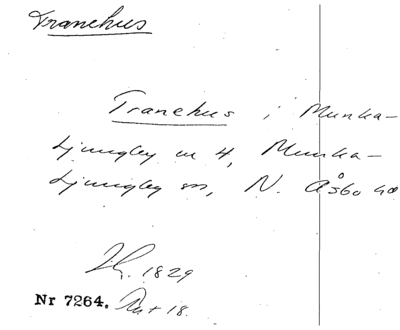 Tranehus
Tranehus i Munka-
Ljungby nr 4, Munka-
Ljungby sn, N. Åsbo hd
1829
Nr 7264. 18.